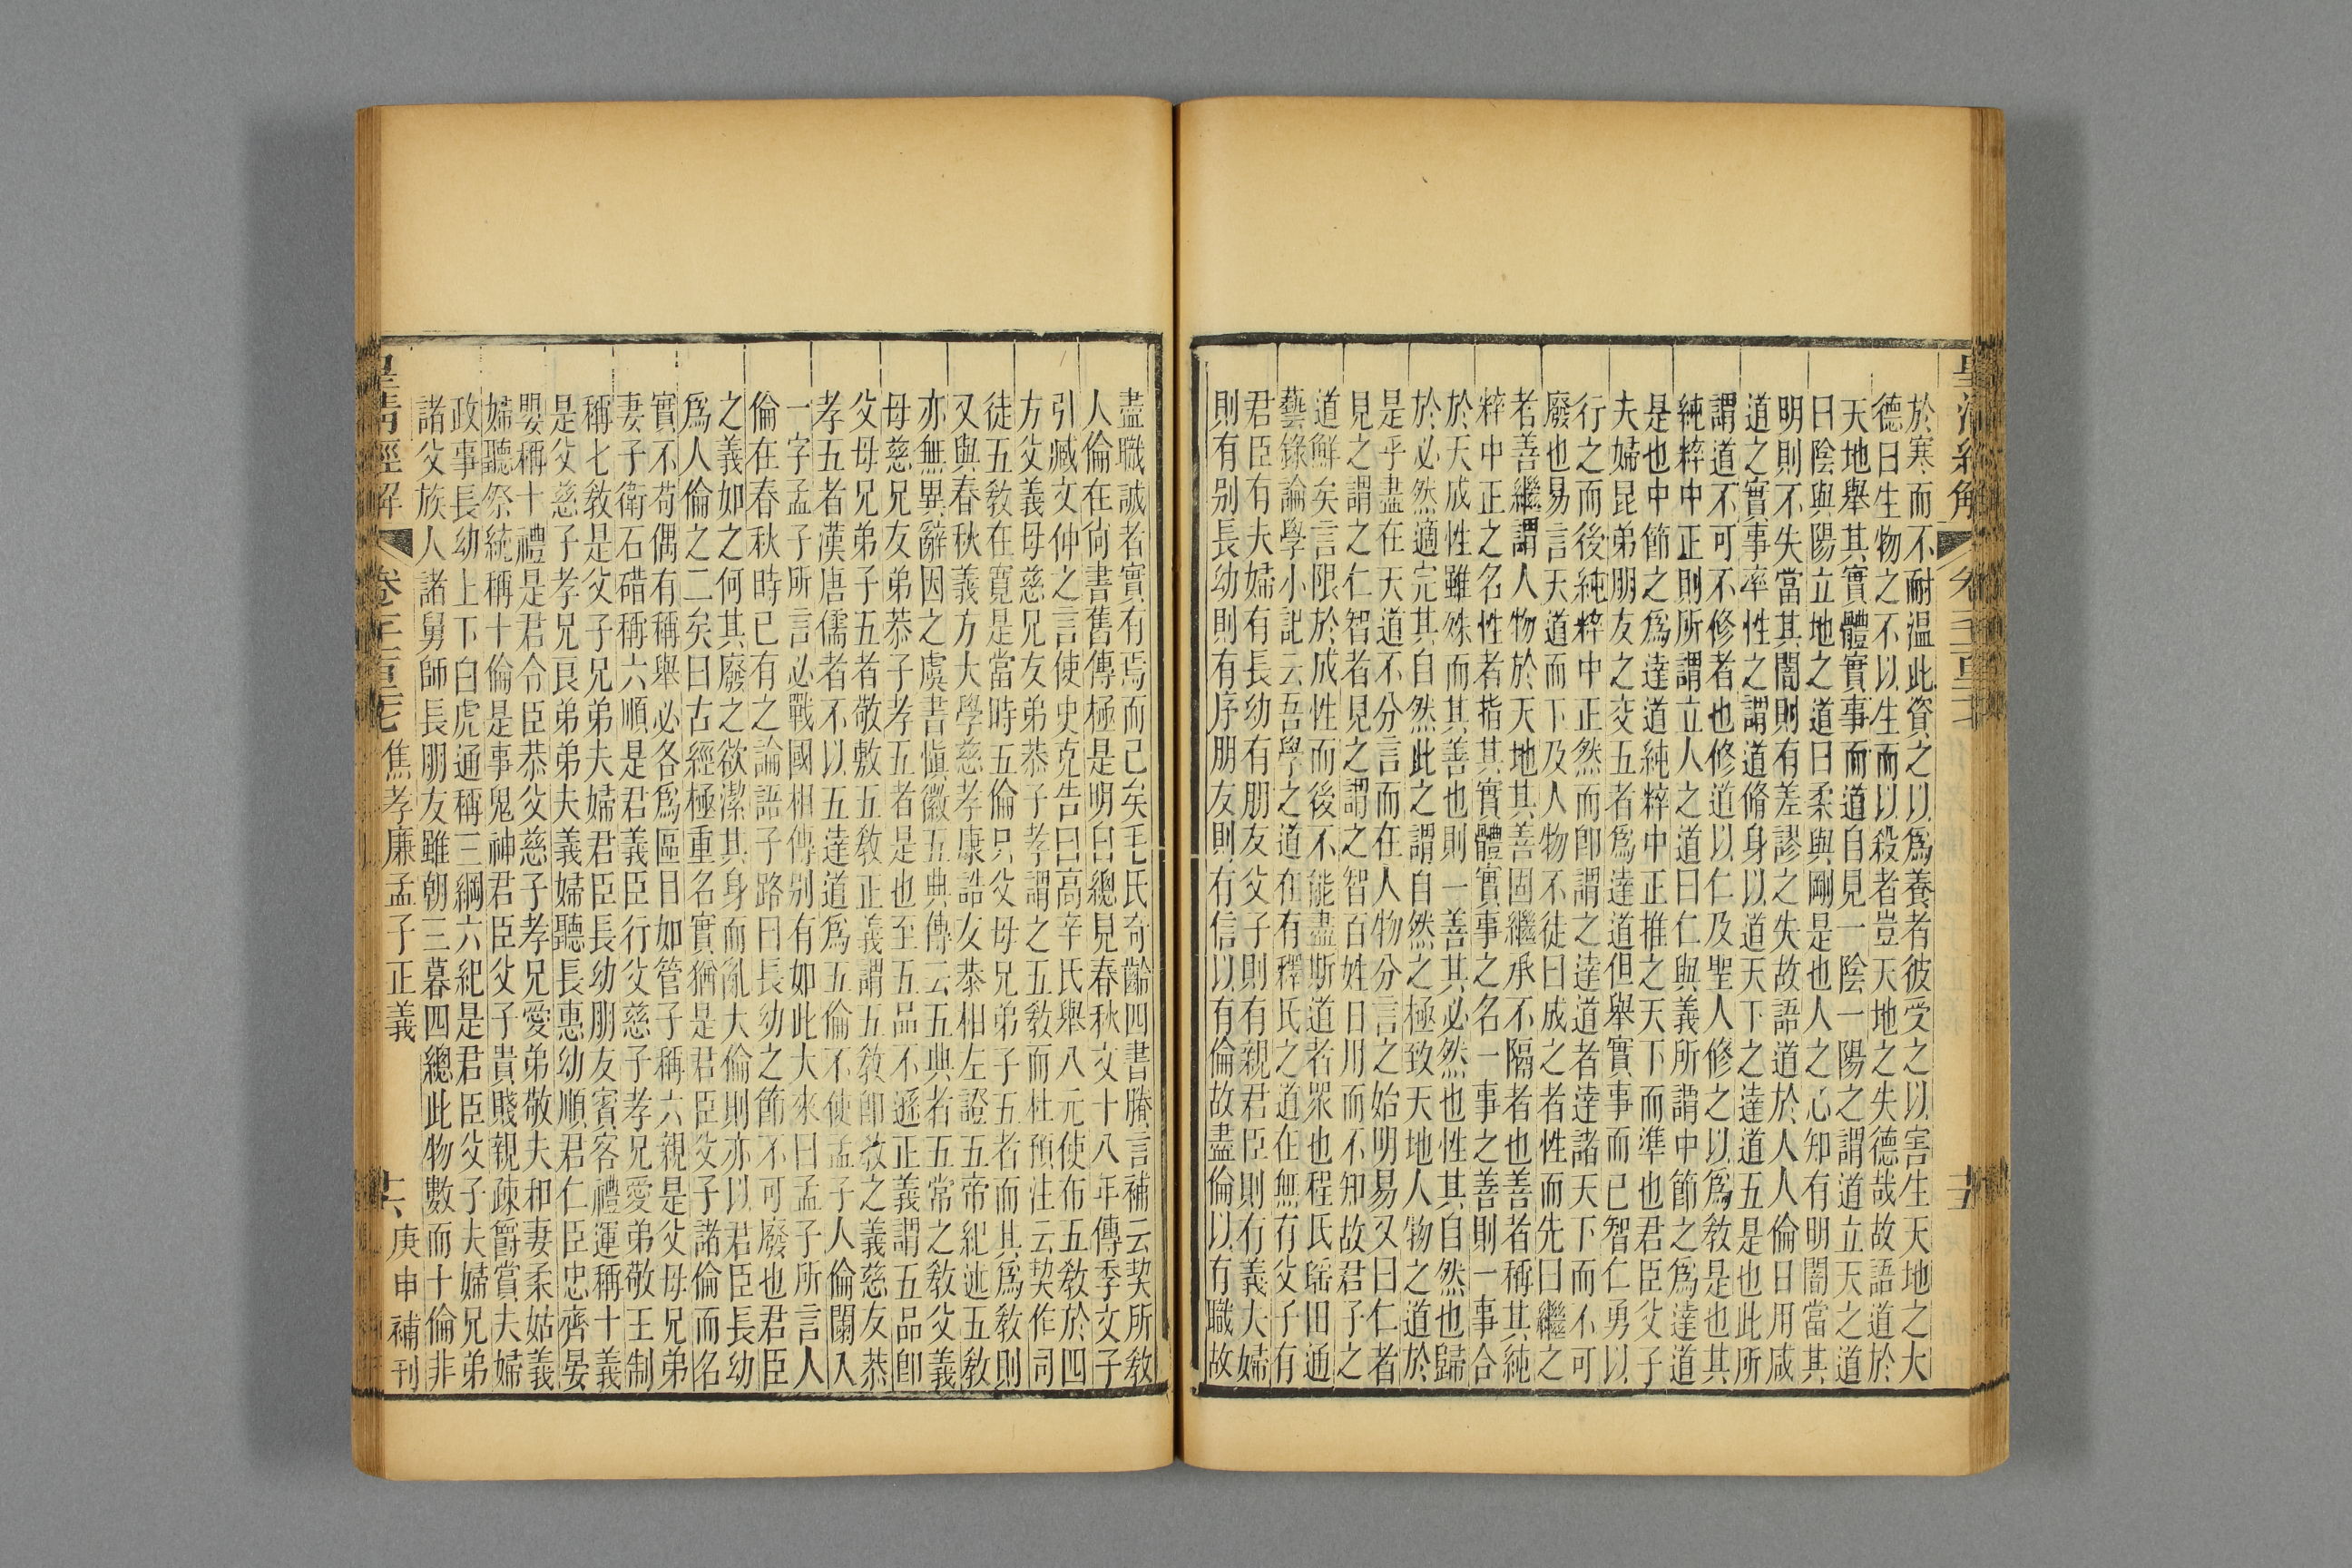 於寒而不耐温此資之以爲養者彼受之以害生天地之大
德曰生物之不以生而以殺者豈天地之失德哉故語道於
天地舉其實體實事而道自見一陰一陽之謂道立天之道
曰陰與陽立地之道曰柔與剛是也人之心知有明闇當其
明則不失當其闇則有差謬之失故語道於人人倫日用咸
道之實事率性之謂道脩身以道天下之達道五是也此所
謂道不可不修者也修道以仁及聖人修之以爲敎是也其
純粹中正則所謂立人之道曰仁與義所謂中節之爲達道
是也中節之爲達道純粹中正推之天下而準也君臣父子
夫婦昆弟朋友之交五者爲達道但舉實事而已智仁勇以
行之而後純粹中正然而卽謂之達道者達諸天下而不可
廢也易言天道而下及人物不徒曰成之者性而先曰繼之
者善繼謂人物於天地其善固繼承不隔者也善者稱其純
粹中正之名性者指其實體實事之名一事之善則一事合
於天成性雖殊而其善也則一善其必然也性其自然也歸
於必然適完其自然此之謂自然之極致天地人物之道於
是乎盡在天道不分言而在人物分言之始明易又曰仁者
見之謂之仁智者見之謂之智百姓日用而不知故君子之
道鮮矣言限於成性而後不能盡斯道者衆也程氏瑤田通
藝錄論學小記云吾學之道在有釋氏之道在無有父子有
君臣有夫婦有長幼有朋友父子則有親君臣則有義大婦
則有別長幼則有序朋友則有信以有倫故盡倫以有職故
盡職誠者實有焉而已矣毛氏奇齡四書賸言補云契所敎
人倫在尙書舊傳極是明白總見春秋文十八年傳季文子
引臧文仲之言使史克告曰高辛氏舉八元使布五敎於四
方父義母慈兄友弟恭子孝謂之五敎而杜預注云契作司
徒五敎在寬是當時五倫只父母兄弟子五者而其爲敎則
又與春秋義方大學慈孝康誥友恭相左證五帝紀述五敎
亦無異辭因之虞書愼徽五典傳云五典者五常之敎父義
母慈兄友弟恭子孝五者是也至五品不遜正義謂五品卽
父母兄弟子五者敬敷五敎正義謂五敎卽敎之義慈友恭
孝五者漢唐儒者不以五達道爲五倫不使孟子人倫闌入
一字孟子所言必戰國相傳別有如此大來曰孟子所言人
倫在春秋時已有之論語子路曰長幼之節不可廢也君臣
之義如之何其廢之欲潔其身而亂大倫則亦以君臣長幼
爲人倫之二矣曰古經極重名實猶是君臣父子諸倫而名
實不苟偶有稱舉必各爲區目如管子稱六親是父母兄弟
妻子衛石碏稱六順是君義臣行父慈子孝兄愛弟敬王制
稱七敎是父子兄弟夫婦君臣長幼朋友賓客禮運稱十義
是父慈子孝兄良弟弟夫義婦聽長惠幼順君仁臣忠齊晏
嬰稱十禮是君令臣恭父慈子孝兄愛弟敬夫和妻柔姑義
婦聽祭統稱十倫是事鬼神君臣父子貴賤親疎爵賞夫婦
政事長幼上下白虎通稱三綱六紀是君臣父子夫婦兄弟
諸父族人諸舅師長朋友雖朝三暮四總此物數而十倫非
皇淸經解 卷三百三十七 焦孝廉孟子正義 庚申補刊